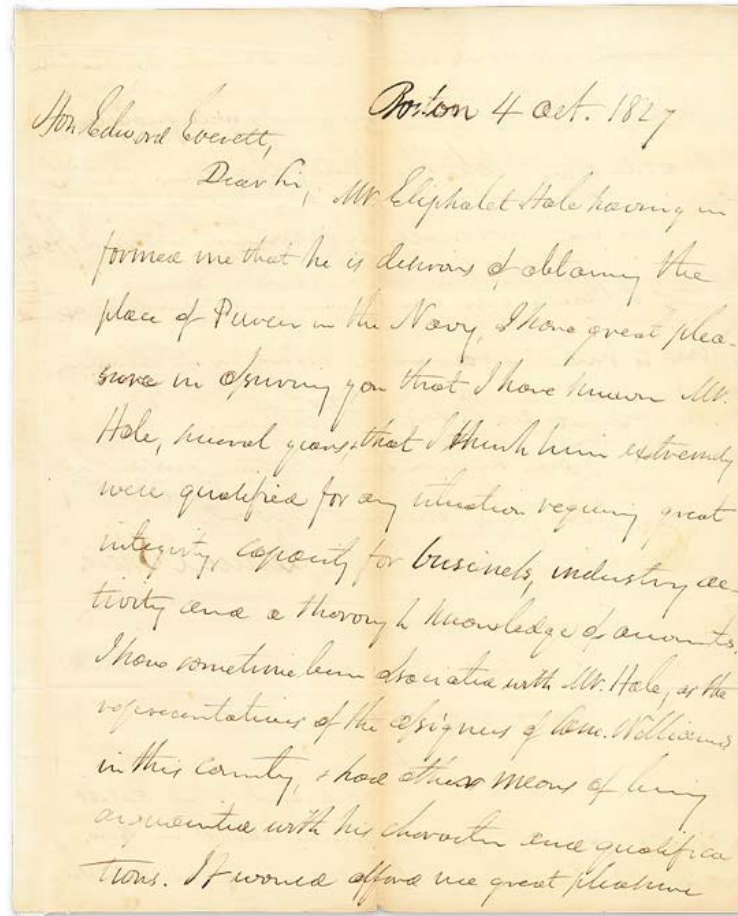 Boston 4 Oct. 1827
Hon Edward Everett,
Dear Sir, Mr. Eliphalet Hale having in
formed me that he is desirous of obtaining the
place of Purser in the Navy, I have great plea-
sure in assuring you that I have known Mr.
Hale, several years, & that I think him extremely
well qualified for any situation requiring great
integrity, capacity for business, industry ac-
tivity and a thorough knowledge of accounts.
I have sometime been associated with Mr. Hale, as the
representatives of the assignees of Williams
in this country, & had other means of being
acquainted with his character and qualifica
tions. It would afford me great pleasure